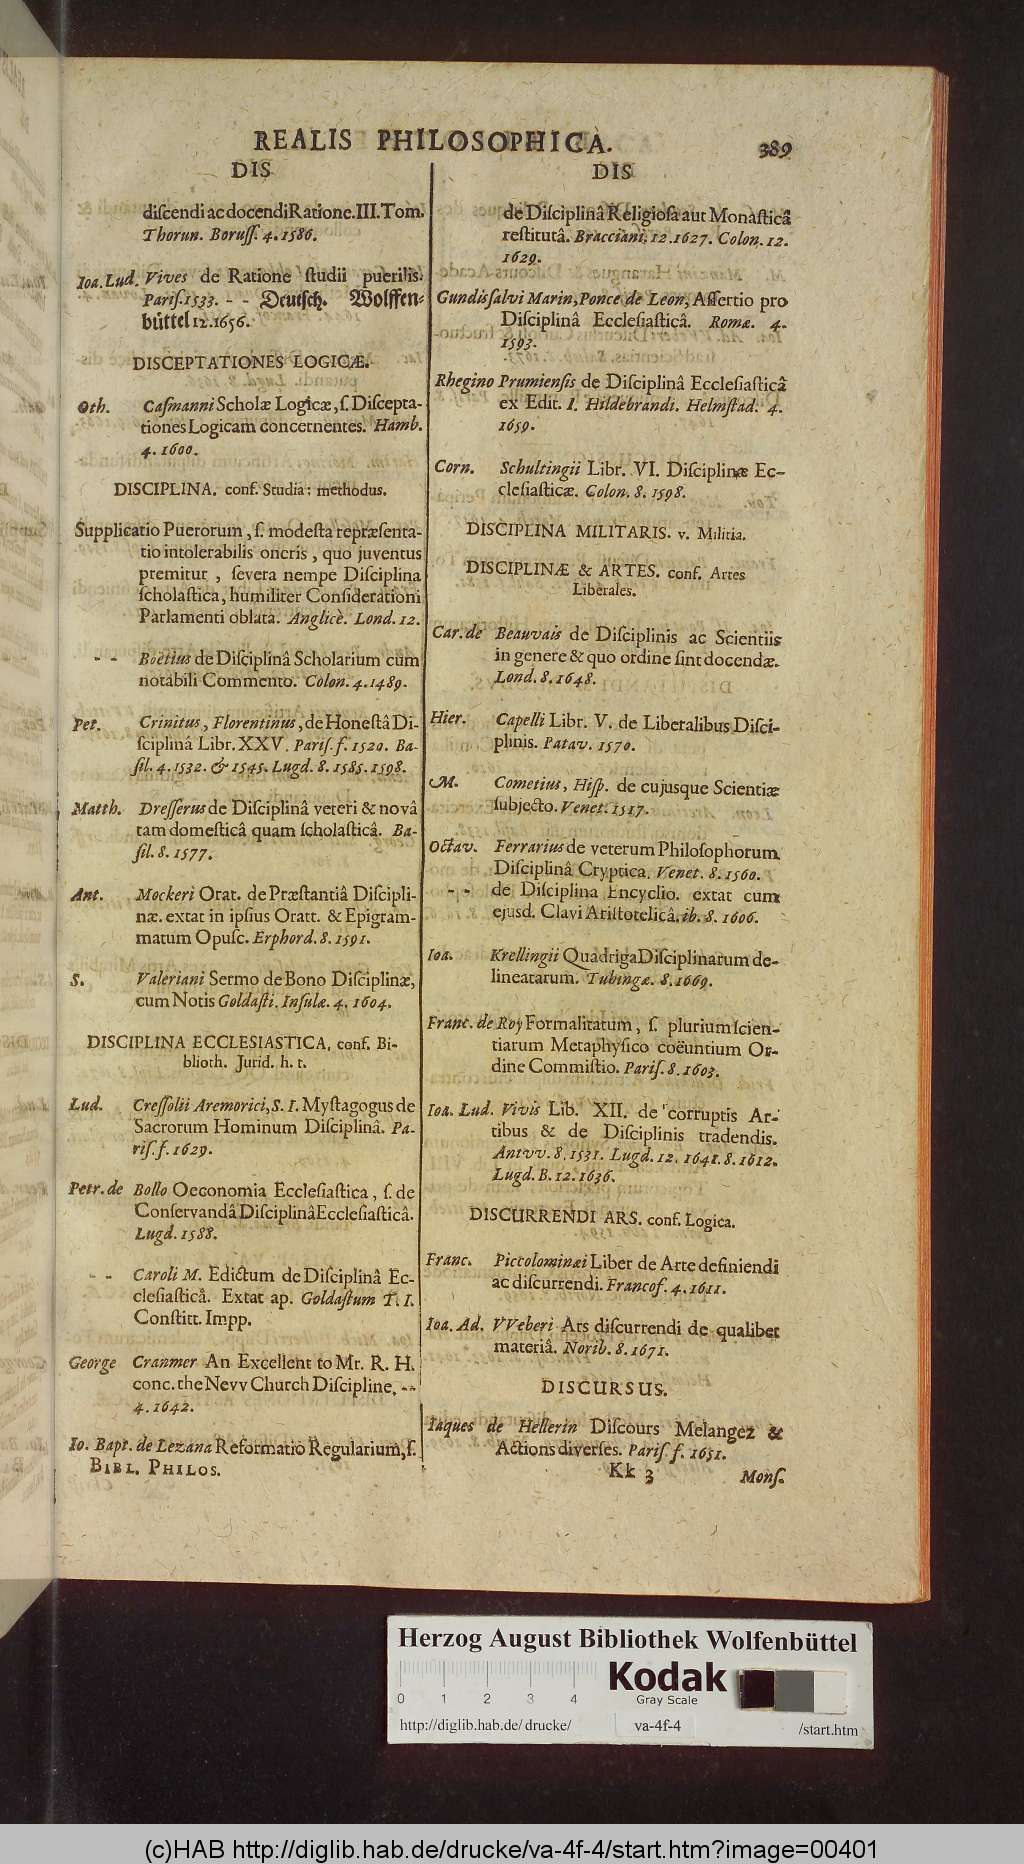 REALIS PHILOSOPHICA. 389
DIS
discendi ac docendi Ratione. III. Tom.
Thorun. Boruss. 4. 1586.
Ioa. Lud. Vives de Ratione studii puerilis.
Paris. 1533. - - Deutsch. Wolffen-
büttel 12. 1656.
DISCEPTATIONES LOGICÆ.
Oth. Casmanni Scholæ Logicæ, s. Discepta-
tiones Logicam concernentes. Hamb.
4. 1600.
DISCIPLINA. conf. Studia: methodus.
Supplicatio Puerorum, s. modesta repræsenta-
tio intolerabilis oneris, quo juventus
premitur, severa nempe Disciplina
scholastica, humiliter Considerationi
Parlamenti oblata. Anglicè. Lond. 12.
- - Boëtius de Disciplinâ Scholarium cum
notabili Commento. Colon. 4. 1489.
Pet. Crinitus, Florentinus, de Honestâ Di-
sciplinâ Libr. XXV. Paris. f. 1520. Ba-
sil. 4. 1532. & 1545. Lugd. 8. 1585. 1598.
Matth. Dresserus de Disciplinâ veteri & novâ
tam domesticâ quam scholasticâ. Ba-
sil. 8. 1577.
Ant. Mockeri Orat. de Præstantiâ Discipli-
næ. extat in ipsius Oratt. & Epigram-
matum Opusc. Erphord. 8. 1591.
S. Valeriani Sermo de Bono Disciplinæ,
cum Notis Goldasti. Insulæ. 4. 1604.
DISCIPLINA ECCLESIASTICA, conf. Bi-
blioth. Jurid. h. t.
Lud. Cressolii Aremorici, S. I. Mystagogus de
Sacrorum Hominum Disciplinâ. Pa-
ris. f. 1629.
Petr. de Bollo Oeconomia Ecclesiastica, s. de
Conservandâ Disciplinâ Ecclesiasticâ.
Lugd. 1588.
- - Caroli M. Edictum de Disciplinâ Ec-
clesiasticâ. Extat ap. Goldastum T. I.
Constitt. Impp.
George Cranmer An Excellent to Mr. R. H.
conc. the Nevv Church Discipline. --
4. 1642.
Io. Bapt. de Lezana Reformatio Regularium, s.
BIBL. PHILOS.
DIS
de Disciplinâ Religiosa aut Monasticâ
restitutâ. Bracciani. 12. 1627. Colon. 12.
1629.
Gundissalvi Marin, Ponce de Leon, Assertio pro
Disciplinâ Ecclesiasticâ. Romæ. 4.
1593.
Rhegino Prumiensis de Disciplinâ Ecclesiasticâ
ex Edit. I. Hildebrandi. Helmstad. 4.
1659.
Corn. Schultingii Libr. VI. Disciplinæ Ec-
clesiasticæ. Colon. 8. 1598.
DISCIPLINA MILITARIS. v. Militia.
DISCIPLINÆ & ARTES. conf. Artes
Liberales.
Car. de Beauvais de Disciplinis ac Scientiis
in genere & quo ordine sint docendæ.
Lond. 8. 1648.
Hier. Capelli Libr. V. de Liberalibus Disci-
plinis. Patav. 1570.
M. Cometius, Hisp. de cujusque Scientiæ
subjecto. Venet. 1517.
Octav. Ferrarius de veterum Philosophorum
Disciplinâ Cryptica. Venet. 8. 1560.
- - de Disciplina Encyclio. extat cum
ejusd. Clavi Aristotelicâ. ib. 8. 1606.
Ioa. Krellingii Quadriga Disciplinarum de-
lineatarum. Tubingæ. 8. 1669.
Franc. de Roy Formalitatum, s. plurium scien-
tiarum Metaphysico coëuntium Or-
dine Commistio. Paris. 8. 1603.
Ioa. Lud. Vivis Lib. XII. de corruptis Ar-
tibus & de Disciplinis tradendis.
Antvv. 8. 1531. Lugd. 12. 1641. 8. 1612.
Lugd. B. 12. 1636.
DISCURRENDI ARS. conf. Logica.
Franc. Piccolominæi Liber de Arte definiendi
ac discurrendi. Francof. 4. 1611.
Ioa. Ad. VVeberi Ars discurrendi de qualibet
materiâ. Norib. 8. 1671.
DISCURSUS.
Iaques de Hellerin Discours Melangez &
Actions diverses. Paris. f. 1651.
Kk 3 Mons.
Herzog August Bibliothek Wolfenbüttel
0 1 2 3 4
Kodak
Gray Scale
http://diglib.hab.de/drucke/ va-4f-4 /start.htm
(c)HAB http://diglib.hab.de/drucke/va-4f-4/start.htm?image=00401